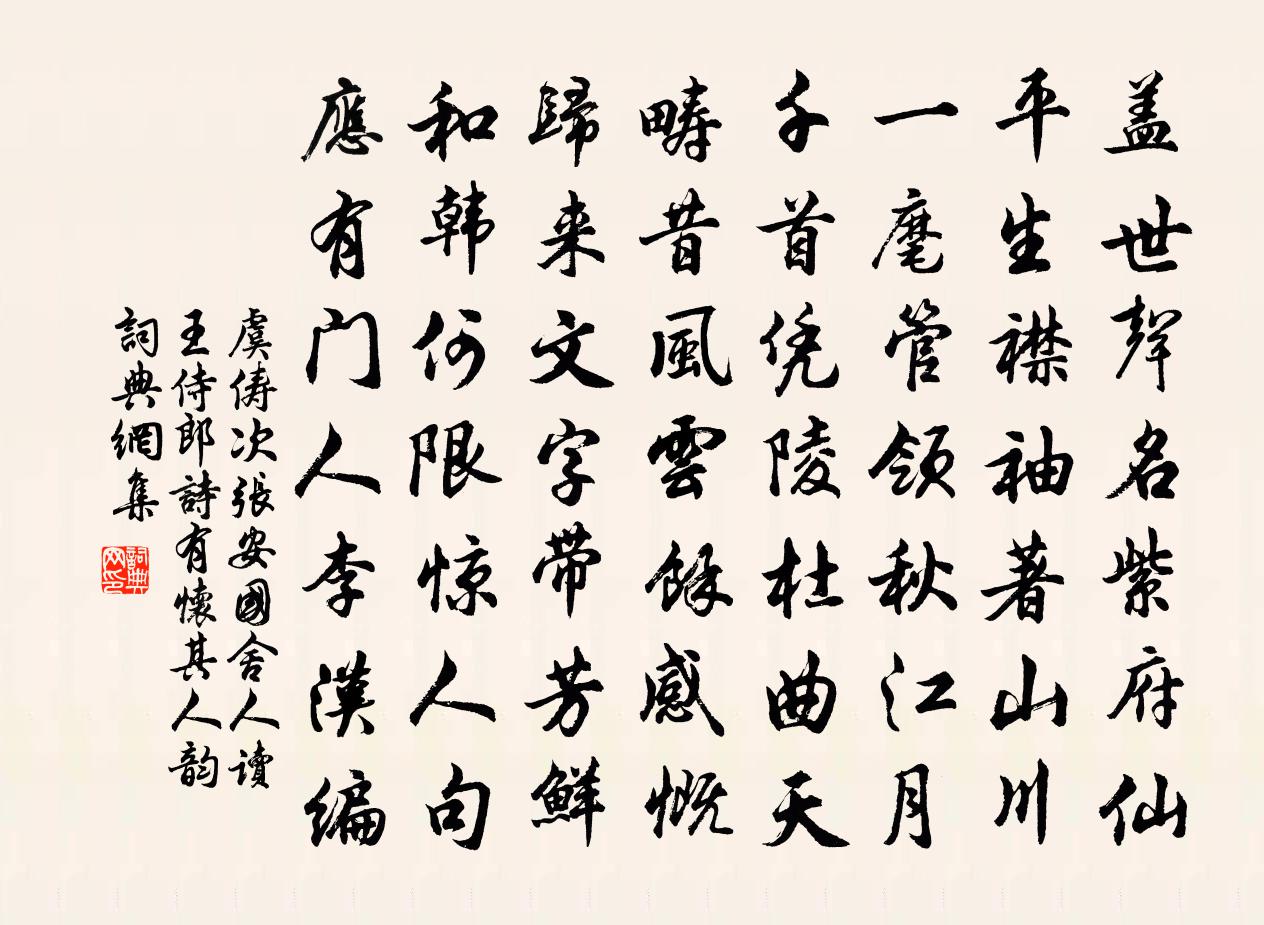 盖世聲名紫府仙
平生襟袖著山川
一麾管領秋江月
千首凭陵杜曲天
疇昔風雲餘感慨
歸来文字帶芳鮮
和韩何限惊人句
應有门人李漢编
虞俦次張安國舍人读
王侍郎詩有懷其人韵
詞典網集
詞典网印